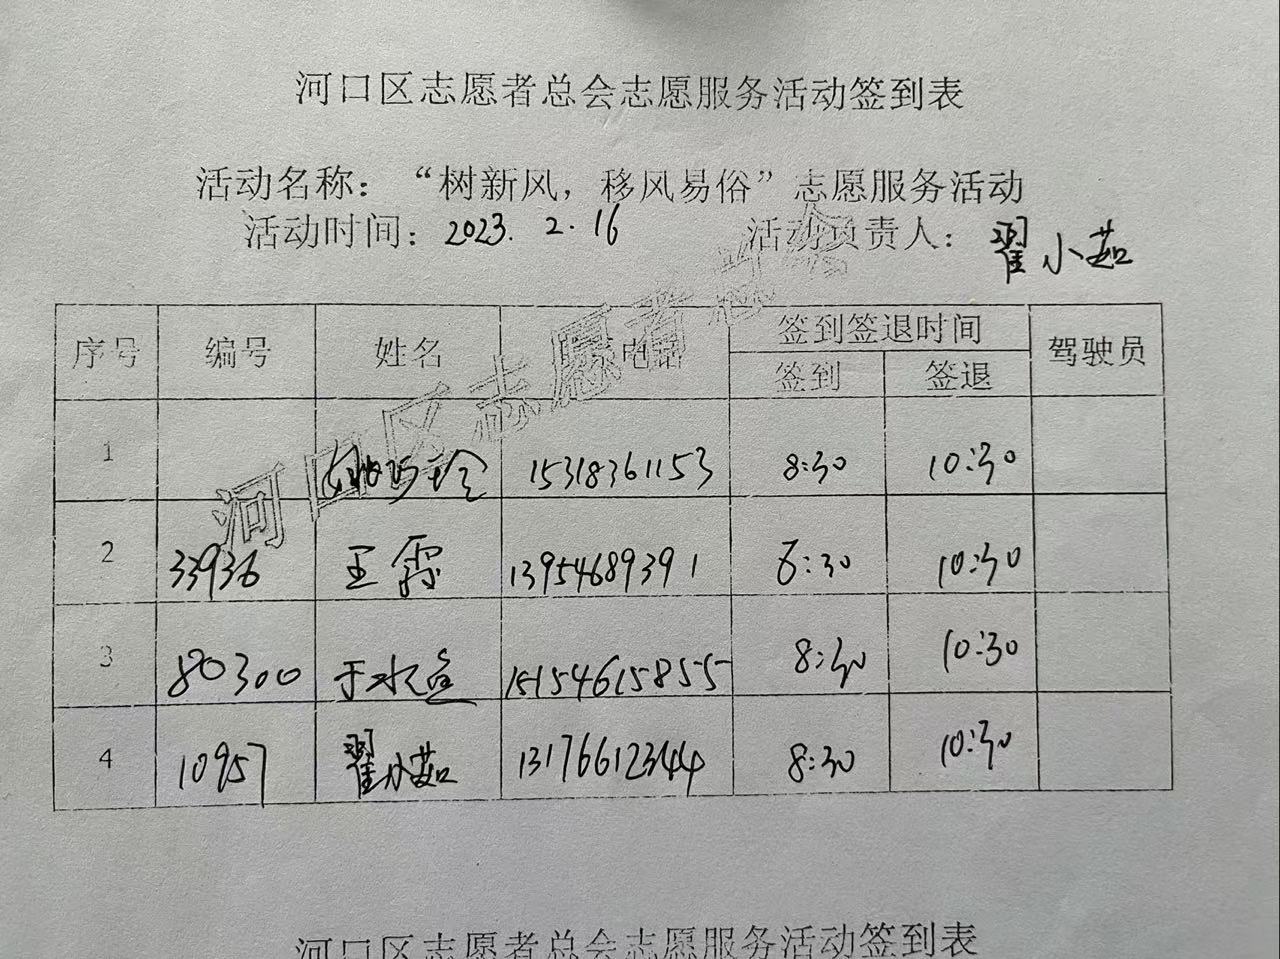 河口区志愿者总会志愿服务活动签到表
活动名称：“树新风，移风易俗”志愿服务活动
活动时间：2023.2.16 活动负责人：翟小茹
序号 编号 姓名 电话 签到签退时间 驾驶员
签到 签退
1 15318361153 8:30 10:30
2 33936 王霞 13954689391 8:30 10:30
3 80300 于水 15154615855 8:30 10:30
4 10957 翟小茹 13176612344 8:30 10:30
河口区志愿者总会
河口区志愿者总会志愿服务活动签到表